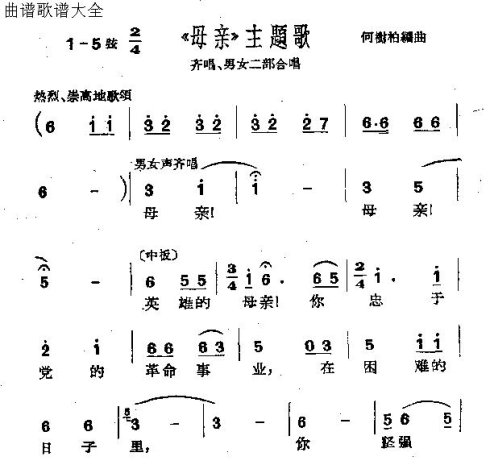 曲谱歌谱大全
1-5弦 2/4 《母亲》主題歌 何樹柏編曲
齐唱、男女二部合唱
热烈、崇高地歌頌
( 6 i i | 3 2 3 2 | 3 2 2 7 | 6·6 6 6 |
男女声齐唱
6 - ) | 3 i | i - | 3 5 |
母 亲! 母 亲!
(中板)
5 - | 6 5 5 | 3/4 i 6 · 6 5 | 2/4 i · i |
英 雄的 母亲! 你 忠 于
2 i | 6 6 6 3 | 5 0 3 | 5 i i |
党 的 革命 事 业, 在 困 难的
6 6 | 5 3 - | 3 - | 6 - | 5 6 5 |
日 子 里, 你 坚强